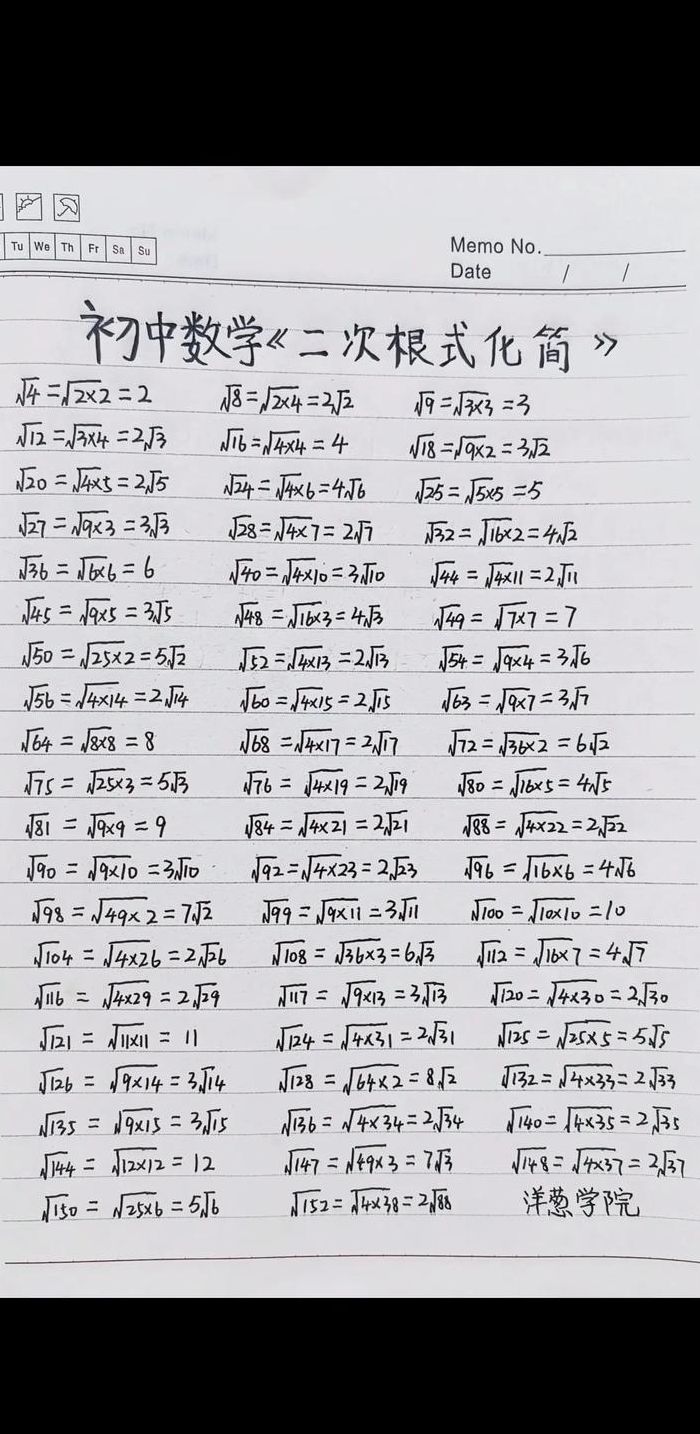 Tu We Th Fr Sa Su
Memo No.
Date / /
初中数学《二次根式化简》
√4=√2×2=2 √8=√2×4=2√2 √9=√3×3=3
√12=√3×4=2√3 √16=√4×4=4 √18=√9×2=3√2
√20=√4×5=2√5 √24=√4×6=4√6 √25=√5×5=5
√27=√9×3=3√3 √28=√4×7=2√7 √32=√16×2=4√2
√36=√6×6=6 √40=√4×10=3√10 √44=√4×11=2√11
√45=√9×5=3√5 √48=√16×3=4√3 √49=√7×7=7
√50=√25×2=5√2 √52=√4×13=2√13 √54=√9×4=3√6
√56=√4×14=2√14 √60=√4×15=2√15 √63=√9×7=3√7
√64=√8×8=8 √68=√4×17=2√17 √72=√36×2=6√2
√75=√25×3=5√3 √76=√4×19=2√19 √80=√16×5=4√5
√81=√9×9=9 √84=√4×21=2√21 √88=√4×22=2√22
√90=√9×10=3√10 √92=√4×23=2√23 √96=√16×6=4√6
√98=√49×2=7√2 √99=√9×11=3√11 √100=√10×10=10
√104=√4×26=2√26 √108=√36×3=6√3 √112=√16×7=4√7
√116=√4×29=2√29 √117=√9×13=3√13 √120=√4×30=2√30
√121=√11×11=11 √124=√4×31=2√31 √125=√25×5=5√5
√126=√9×14=3√14 √128=√64×2=8√2 √132=√4×33=2√33
√135=√9×15=3√15 √136=√4×34=2√34 √140=√4×35=2√35
√144=√12×12=12 √147=√49×3=7√3 √148=√4×37=2√37
√150=√25×6=5√6 √152=√4×38=2√88 洋葱学院